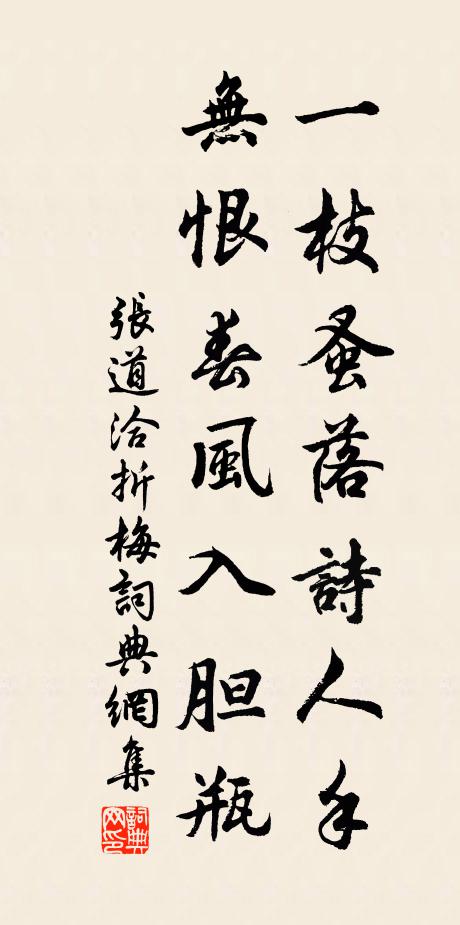 一枝蚤落詩人手
無恨春風入胆瓶
張道洽折梅詞典網集
詞典网印